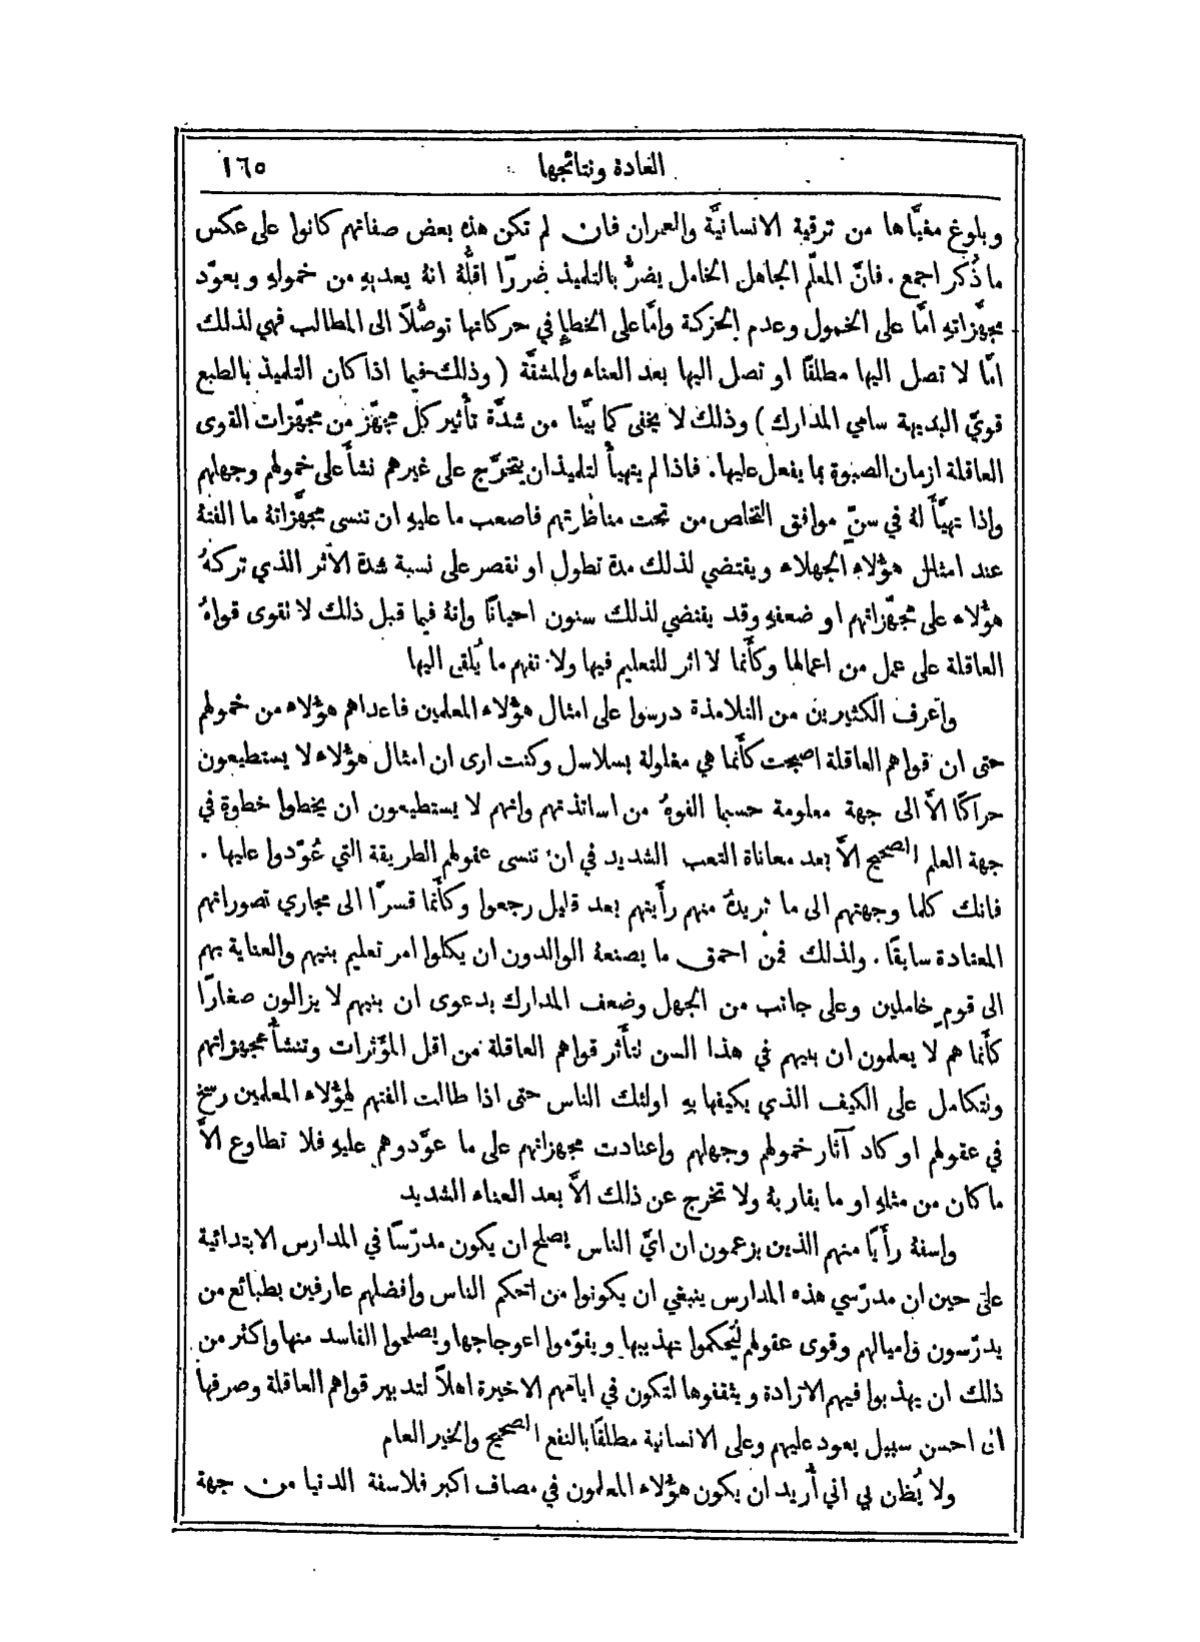 العادة ونتائجها ١٦٥
وبلوغ مغبَّاها من ترقية الانسانيَّة والعمران فان لم تكن هذهِ بعض صفاتهم كانوا على عكس
ما ذُكر اجمع. فانَّ المعلّم الجاهل الخامل يضرُّ بالتلميذ ضررًا اقلَّهُ انهُ يعديهِ من خمولهِ ويعوّد
مجهَّزاتهِ امَّا على الخمول وعدم الحركة وإمَّا على الخطإِ في حركاتها توصُّلًا الى المطالب فهي لذلك
امَّا لا تصل اليها مطلقًا او تصل اليها بعد العناء والمشقَّة (وذلك فيما اذا كان التلميذ بالطبع
قويّ البديهة سامي المدارك) وذلك لا يخفى كما بيَّنا من شدَّة تأثير كل مجهّز من مجهّزات القوى
العاقلة ازمان الصبوة بما يفعل عليها. فاذا لم يتهيأْ لتلميذ ان يتخرَّج على غيرهم نشأَ على خمولهم وجهلهم
واذا تهيَّأَ لهُ في سنّ موافق التخلص من تحت مناظرتهم فاصعب ما عليهِ ان تنسى مجهَّزاتهُ ما الفتهُ
عند امثال هؤُلاء الجهلاء ويقتضي لذلك مدة تطول او تقصر على نسبة شدة الأثر الذي تركهُ
هؤُلاء على مجهّزاتهم او ضعفهِ وقد يقتضي لذلك سنون احيانًا وانهُ فيما قبل ذلك لا تقوى قواهُ
العاقلة على عمل من اعمالها وكأَنما لا اثر للتعليم فيها ولا تفهم ما يُلقى اليها
واعرف الكثيرين من التلامذة درسوا على امثال هؤُلاء المعلمين فاعداهم هؤُلاء من خمولهم
حتى ان قواهم العاقلة اصبحت كأَنما هي مغلولة بسلاسل وكنت ارى ان امثال هؤُلاء لا يستطيعون
حراكًا الَّا الى جهة معلومة حسبما الفوهُ من اساتذتهم وانهم لا يستطيعون ان يخطوا خطوة في
جهة العلم الصحيح الَّا بعد معاناة التعب الشديد في ان تنسى عقولهم الطريقة التي عُوّدوا عليها.
فانك كلما وجهتهم الى ما تريدهُ منهم رأَيتهم بعد قليل رجعوا وكأَنما قسرًا الى مجاري تصوراتهم
المعتادة سابقًا. ولذلك فمن احمق ما يصنعهُ الوالدون ان يكلوا امر تعليم بنيهم والعناية بهم
الى قومٍ خاملين وعلى جانب من الجهل وضعف المدارك بدعوى ان بنيهم لا يزالون صغارًا
كأَنما هم لا يعلمون ان بنيهم في هذا السن تتأَثر قواهم العاقلة من اقل المؤثرات وتنشأُ مجهزاتهم
وتتكامل على الكيف الذي يكيفها بهِ اولئك الناس حتى اذا طالت الفتهم لهؤُلاء المعلمين رسخ
في عقولهم او كاد آثار خمولهم وجهلهم واعتادت مجهزاتهم على ما عوَّدوهم عليهِ فلا تطاوع الَّا
ما كان من مثلهِ او ما يقاربهُ ولا تخرج عن ذلك الَّا بعد العناء الشديد
واسفهُ رأْيًا منهم الذين يزعمون ان ايّ الناس يصلح ان يكون مدرّسًا في المدارس الابتدائية
على حين ان مدرّسي هذه المدارس ينبغي ان يكونوا من احكم الناس وافضلهم عارفين بطبائع من
يدرّسون واميالهم وقوى عقولهم ليُحكموا تهذيبها ويقوّموا اعوجاجها ويصلحوا الفاسد منها واكثر من
ذلك ان يهذبوا فيهم الارادة ويثقفوها لتكون في ايامهم الاخيرة اهلًا لتدبير قواهم العاقلة وصرفها
الى احسن سبيل يعود عليهم وعلى الانسانية مطلقًا بالنفع الصحيح والخير العام
ولا يُظن بي اني أُريد ان يكون هؤُلاء المعلمون في مصاف اكبر فلاسفة الدنيا من جهة